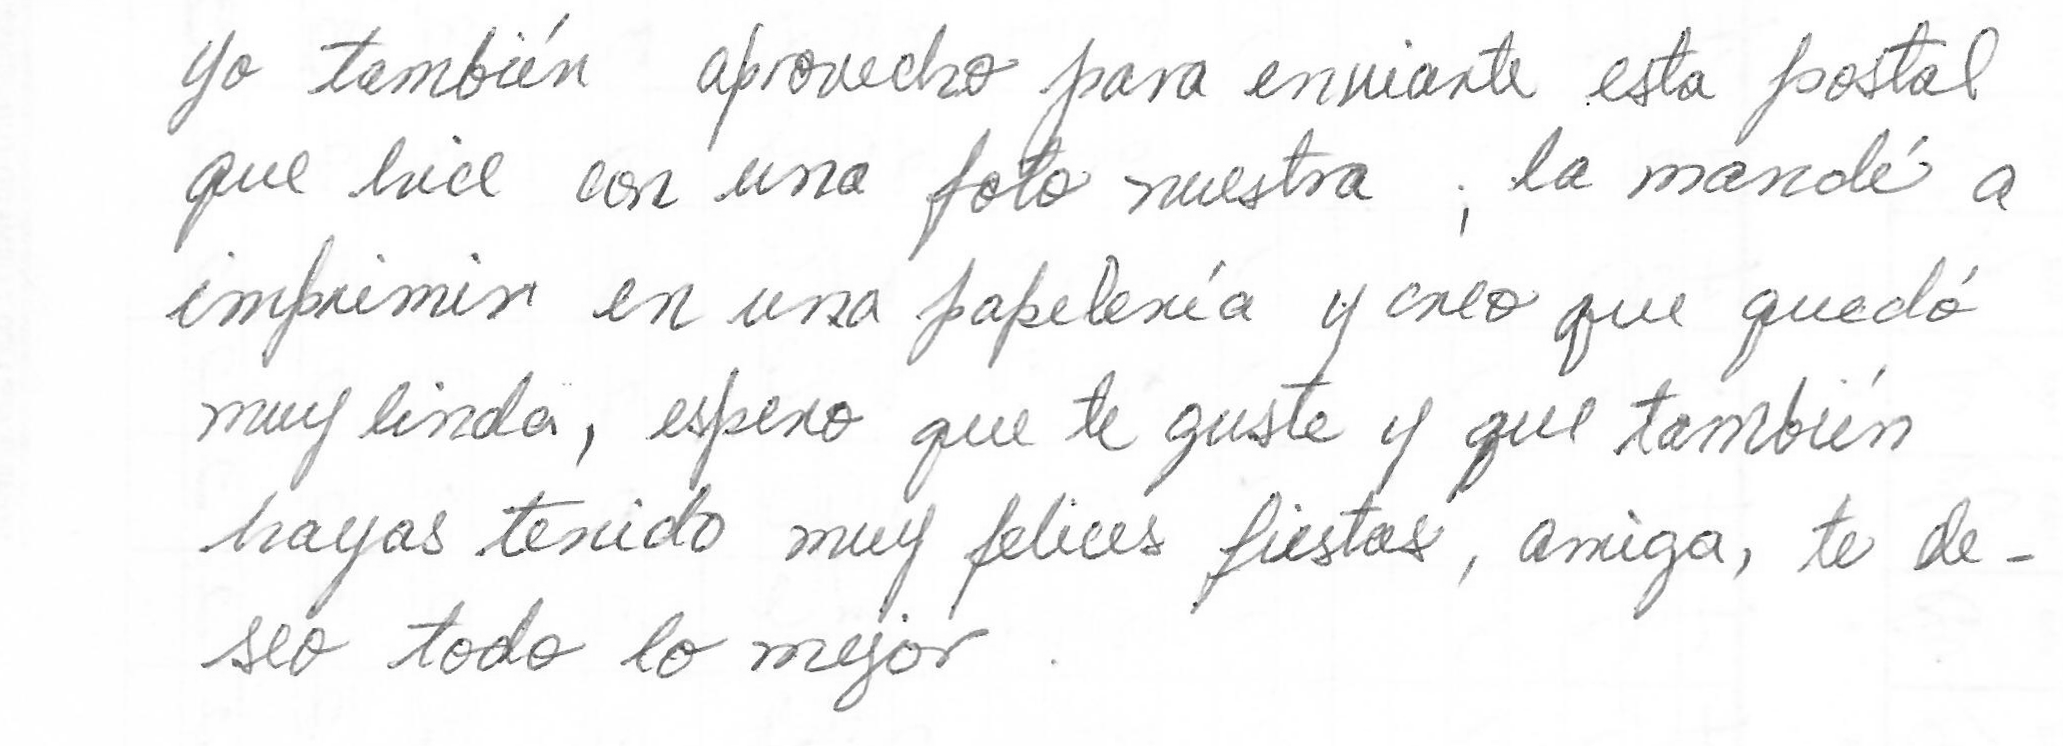 Yo también aprovecho para enviarte esta postal
que hice con una foto nuestra; la mandé a
imprimir en una papelería y creo que quedó
muy linda, espero que te guste y que también
hayas tenido muy felices fiestas, amiga, te de-
seo todo lo mejor.